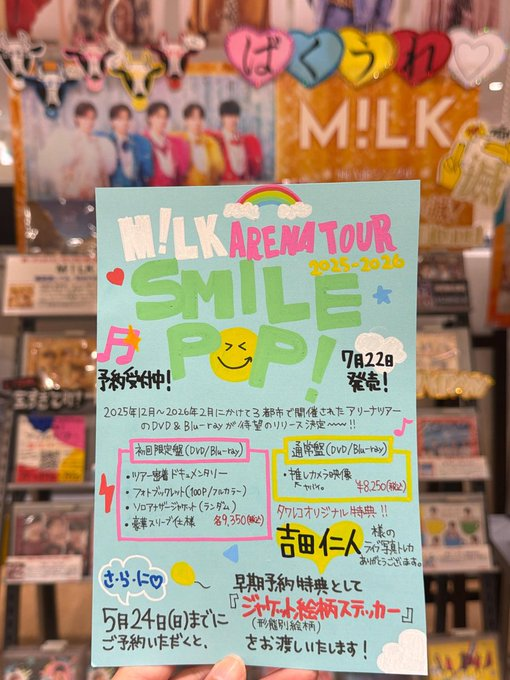 ばくうれ♡
M!LK
M!LK
M!LK ARENA TOUR
2025-2026
SMILE
POP!
予約受付中!
7月22日
発売!
2025年12月〜2026年2月にかけて3都市で開催されたアリーナツアー
のDVD & Blu-rayが待望のリリース決定〜〜〜!!
初回限定盤(DVD/Blu-ray)
・ツアー密着ドキュメンタリー
・フォトブックレット(100P/フルカラー)
・ソロアナザージャケット(ランダム)
・豪華スリーブ仕様 各9,350(税込)
通常盤(DVD/Blu-ray)
・推しカメラ映像
¥8,250(税込)
タワレコオリジナル特典!!
吉田仁人
様の
ライブ写真トレカ
ありがとうございます。
さ・ら・に♡
5月24日(日)までに
ご予約いただくと、
早期予約特典として
『ジャケット絵柄ステッカー』
(形態別絵柄)
をお渡しいたします!